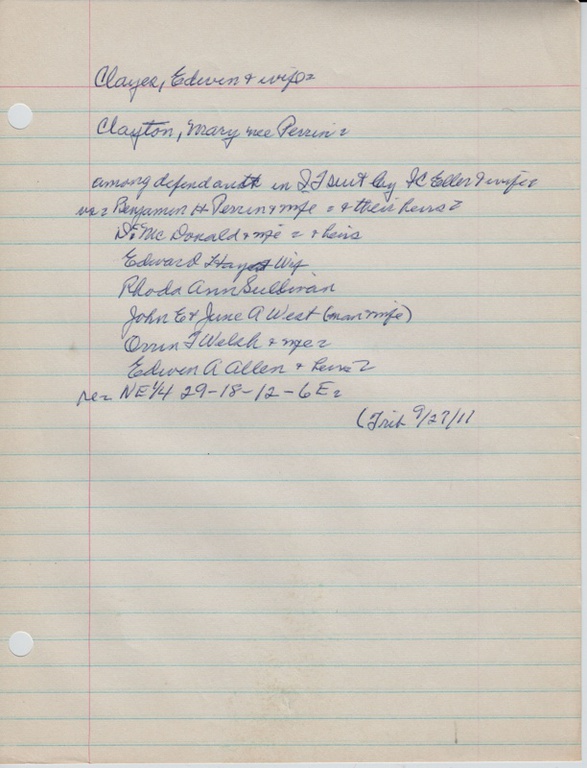 Clayes, Edwin & wife =
Clayton, Mary nee Perrin =
among defendants in suit by Eller & wife =
vs = Benjamin H Perrin & wife = & their heirs =
Mc Donald & wife = & heirs
Edward Hayes & Wif
Rhoda Ann Sullivan
John E & June A West (man & wife)
Orrin T Welsh & wife =
Edwin A Allen & heirs =
re = NE 1/4 29-18-12-6E =
(Trib 9/27/11